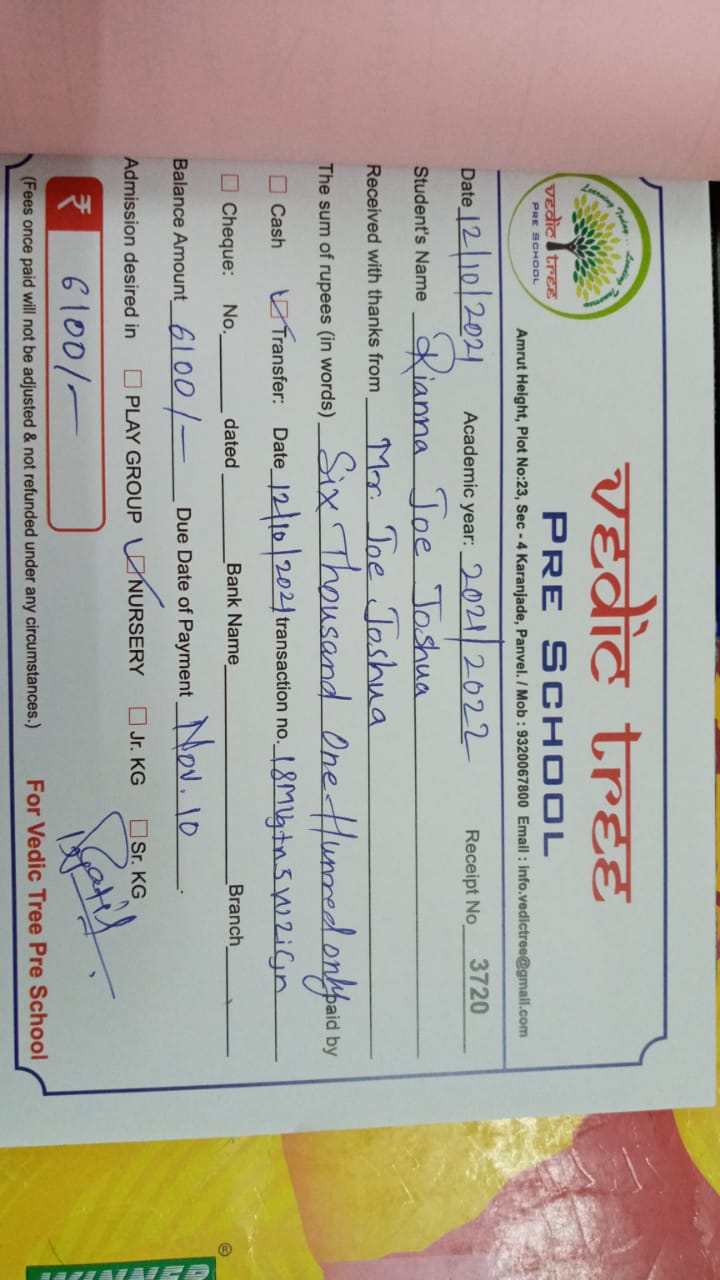 Learning Today... Leading Tomorrow
vedic tree
PRE SCHOOL
vedic tree
PRE SCHOOL
Amrut Height, Plot No:23, Sec - 4 Karanjade, Panvel. / Mob : 9320067800 Email : info.vedictree@gmail.com
Date 12/10/2021 Academic year: 2021/2022 Receipt No 3720
Student's Name Rianna Joe Joshua
Received with thanks from Mr. Joe Joshua
The sum of rupees (in words) Six Thousand One Hunred only paid by
Cash Transfer: Date 12/10/2021 transaction no.
Cheque: No. dated Bank Name Branch
Balance Amount 6100/- Due Date of Payment Nov. 10
Admission desired in PLAY GROUP NURSERY Jr. KG Sr. KG
₹ 6100/-
(Fees once paid will not be adjusted & not refunded under any circumstances.) For Vedic Tree Pre School
WINNER
®